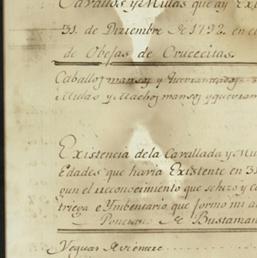 Cavallos y Mulas que ay Exi
31. de Diziembre de 1792. en el
de Obejas de Crucecitas.
Caballos mansos y
Mulas y Machos mansos y
Existencia de la Cavallada y Mu
Edades que havia Existente en 31
gun el reconocimiento que se hizo y c
trega e Ymbentario que formo mi a
Ponciano de Bustaman
Yeguas de vientre